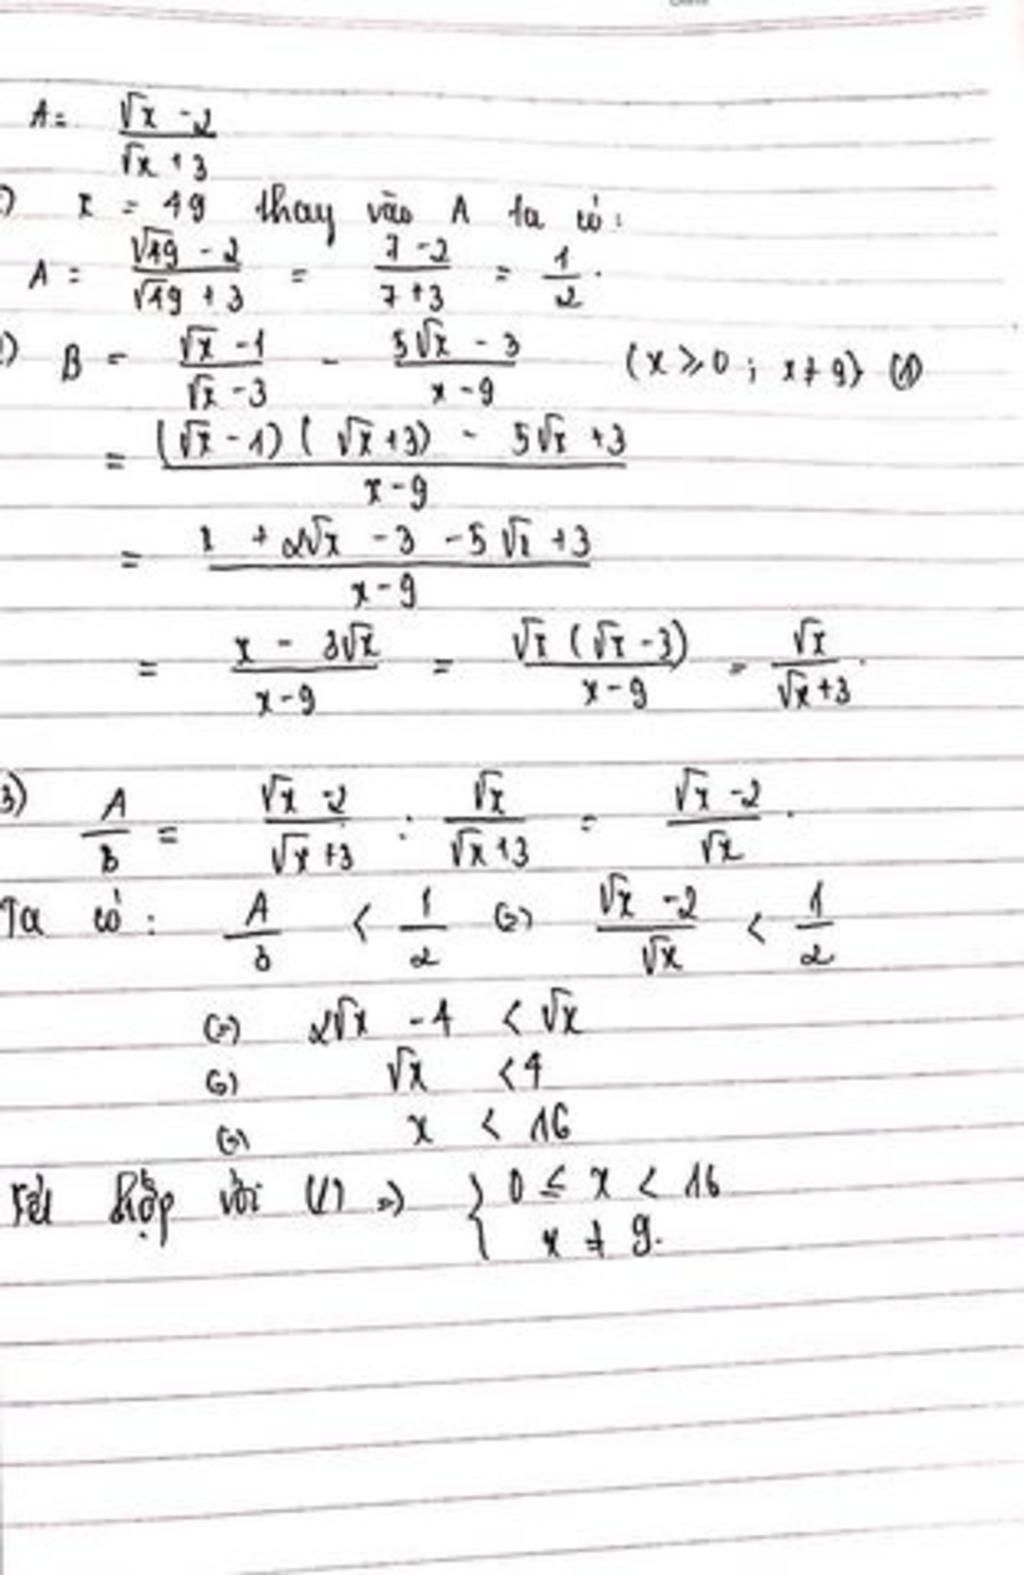 A = (√x - 2)/(√x + 3)
x = 49 thay vào A ta có:
A = (√49 - 2)/(√49 + 3) = (7 - 2)/(7 + 3) = 1/2.
) B = (√x - 1)/(√x - 3) - (5√x - 3)/(x - 9) (x ≥ 0 ; x ≠ 9) (1)
= ((√x - 1)(√x + 3) - 5√x + 3)/(x - 9)
= (x + 2√x - 3 - 5√x + 3)/(x - 9)
= (x - 3√x)/(x - 9) = (√x (√x - 3))/(x - 9) = √x/(√x + 3).
3) A/B = (√x - 2)/(√x + 3) : √x/(√x + 3) = (√x - 2)/√x.
Ta có: A/B < 1/2 (=) (√x - 2)/√x < 1/2
(=) 2√x - 4 < √x
(=) √x < 4
(=) x < 16
Kết hợp với (1) =) { 0 ≤ x < 16
x ≠ 9.